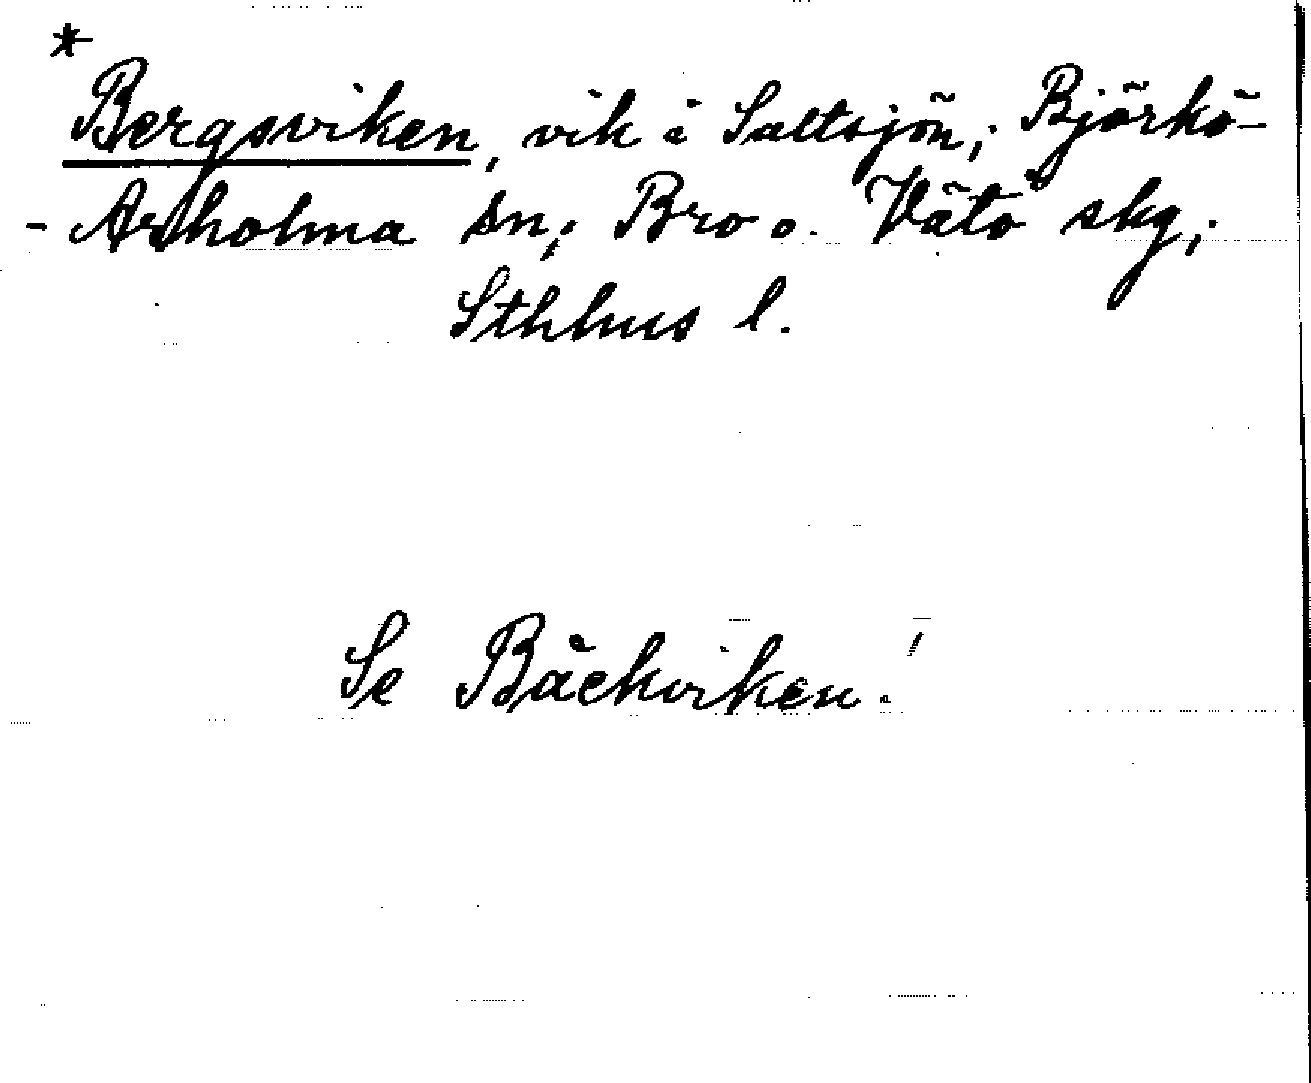 *
Bergsviken, vik i Saltsjön; Björkö-
- Arholma sn; Bro o. Vätö skg;
Sthlms l.
Se Bäckviken!